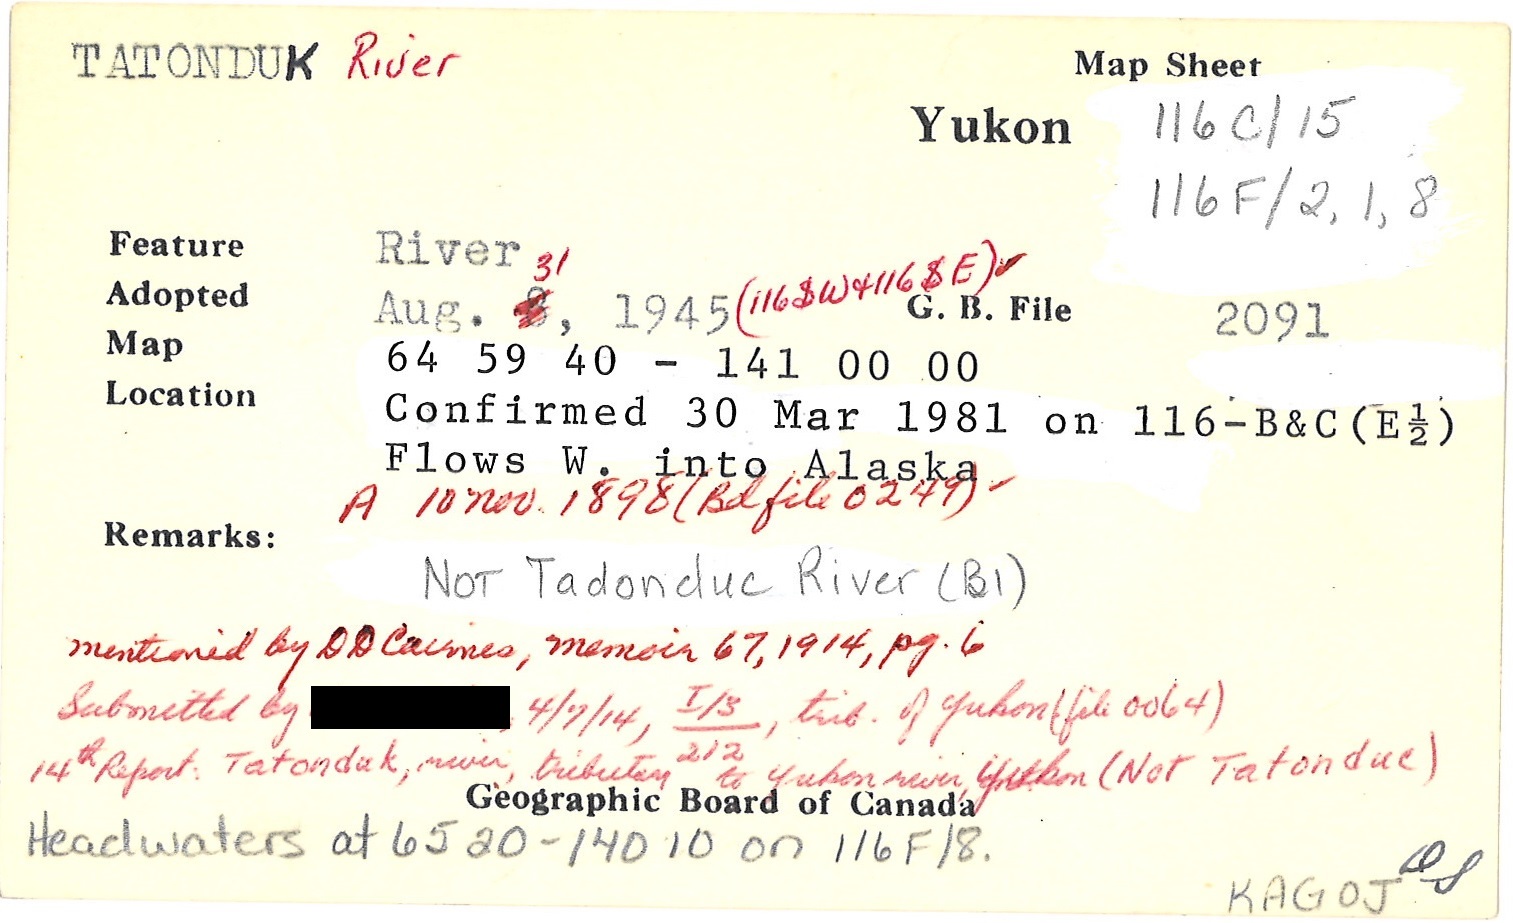 TATONDUK River
Map Sheet
Yukon 116C/15
116F/2, 1, 8
Feature River
Adopted Aug. 31, 1945 (116 W & 116 E) ✓ G. B. File 2091
Map 64 59 40 - 141 00 00
Location Confirmed 30 Mar 1981 on 116-B&C (E½)
Flows W. into Alaska
A 10 Nov. 1898 (Bd file 0249)
Remarks:
Not Tadonduc River (B1)
mentioned by DD Cairnes, memoir 67, 1914, pg. 6
Submitted by , 4/7/14, I/3/212, trib. of Yukon (file 0064)
14th Report: Tatonduk, river, tributary to Yukon river, Yukon (Not Tatonduc)
Geographic Board of Canada
Headwaters at 65 20-140 10 on 116F/8.
KAGOJ